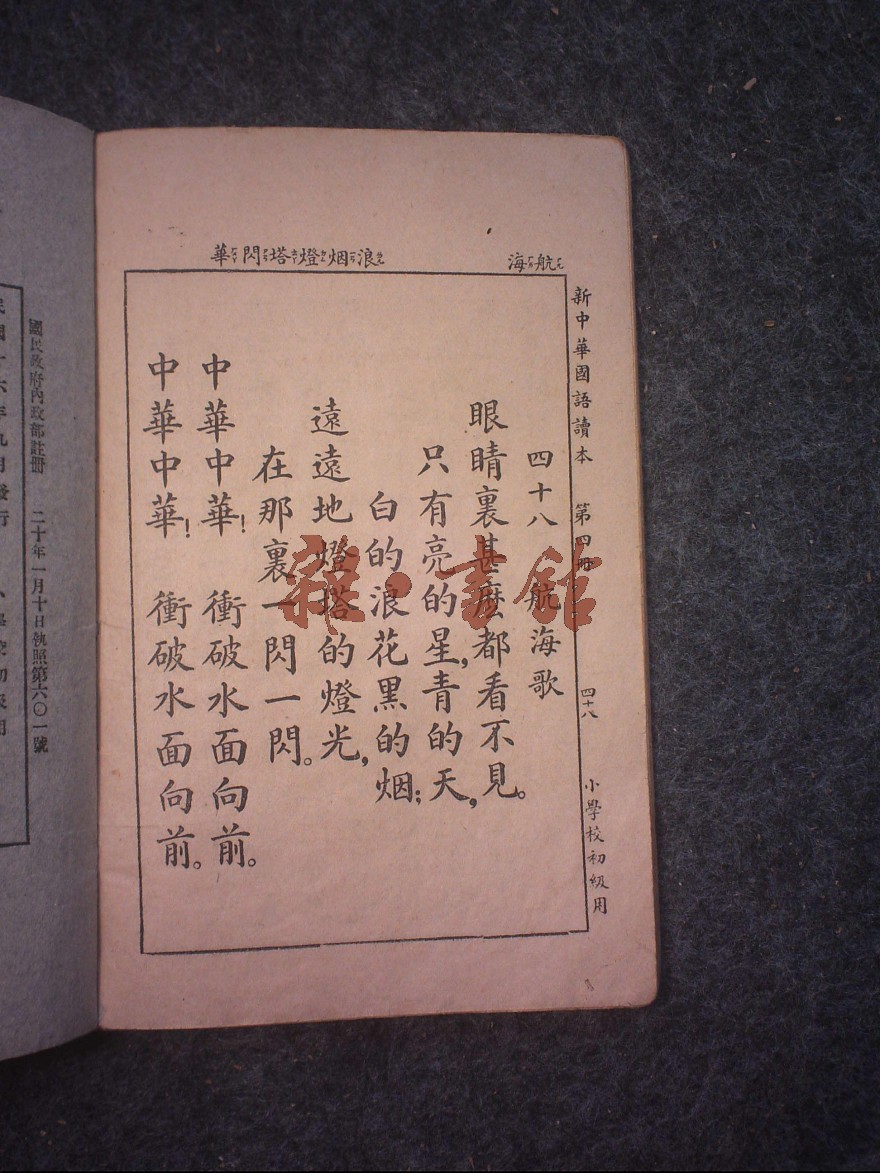 航海
浪烟燈塔閃華
新中華國語讀本 第四册 四十八 小學校初級用
四十八 航海歌
眼睛裏甚麽都看不見。
只有亮的星,青的天,
白的浪花黑的烟;
遠遠地燈塔的燈光,
在那裏一閃一閃。
中華中華! 衝破水面向前。
中華中華! 衝破水面向前。
國民政府內政部註册 二十年一月十日執照第六〇一號
雜·書館